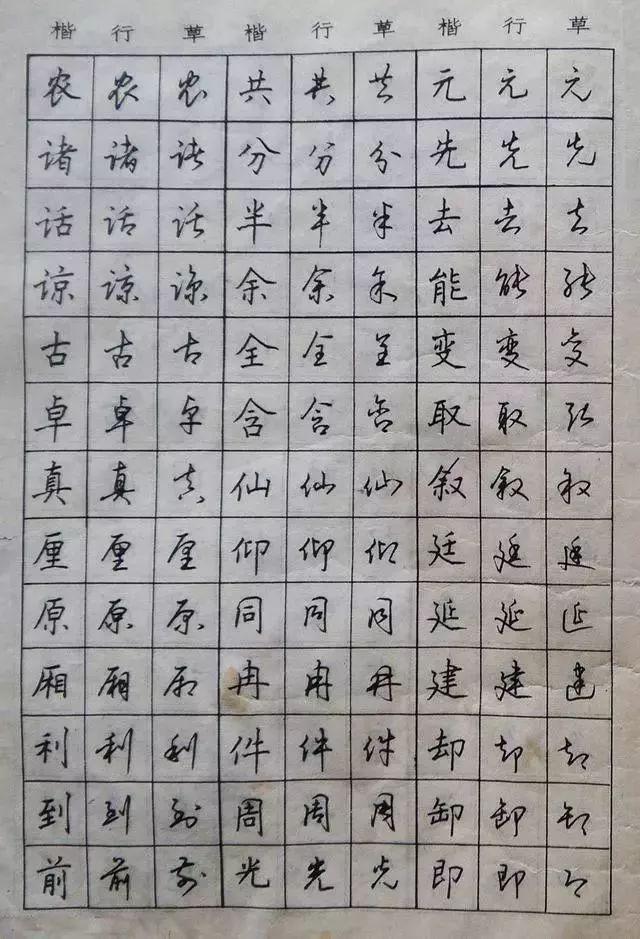 楷 行 草 楷 行 草 楷 行 草
农 农 农 共 共 共 元 元 元
诸 诸 诸 分 分 分 先 先 先
话 话 话 半 半 半 去 去 去
谅 谅 谅 余 余 余 能 能 能
古 古 古 全 全 全 变 变 变
卓 卓 卓 含 含 含 取 取 取
真 真 真 仙 仙 仙 叙 叙 叙
厘 厘 厘 仰 仰 仰 廷 廷 廷
原 原 原 同 同 同 延 延 延
厢 厢 厢 冉 冉 冉 建 建 建
利 利 利 件 件 件 却 却 却
到 到 到 周 周 周 卸 卸 卸
前 前 前 光 光 光 即 即 即